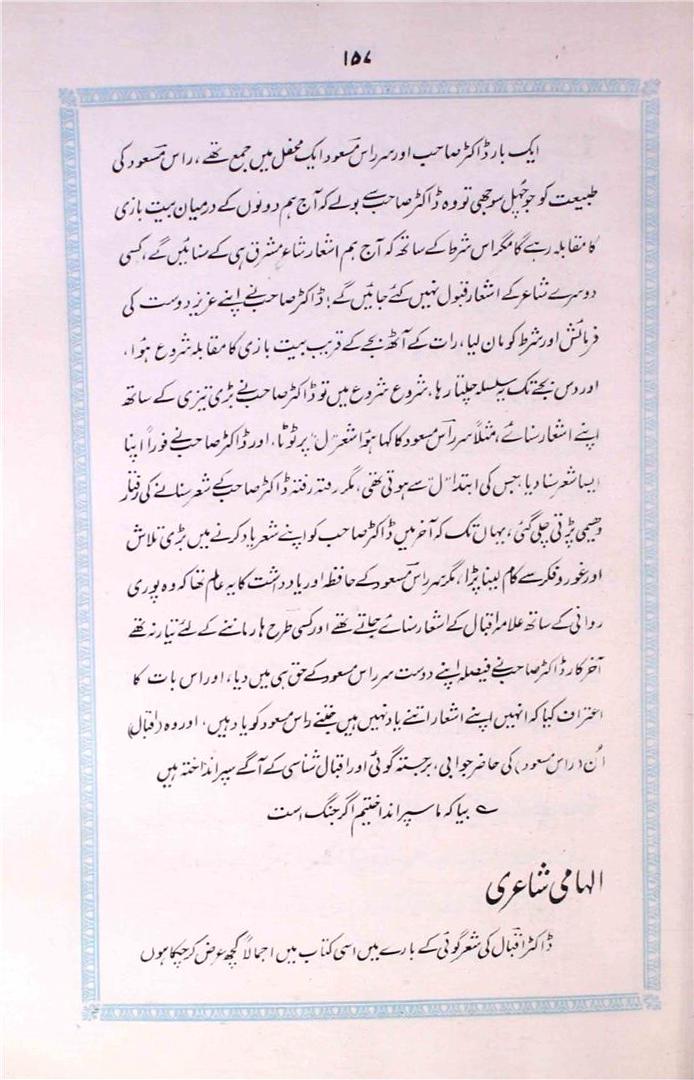 ۱۵۷
ایک بار ڈاکٹر صاحب اور سر راس مسعود ایک محفل میں جمع تھے، راس مسعود کی
طبیعت کو جو چُہل سوجھی تو وہ ڈاکٹر صاحب سے بولے کہ آج ہم دونوں کے درمیان بیت بازی
کا مقابلہ رہے گا مگر اس شرط کے ساتھ کہ آج ہم اشعار شاعرِ مشرق ہی کے سنائیں گے، کسی
دوسرے شاعر کے اشعار قبول نہیں کئے جائیں گے! ڈاکٹر صاحب نے اپنے عزیز دوست کی
فرمائش اور شرط کو مان لیا، رات کے آٹھ بجے کے قریب بیت بازی کا مقابلہ شروع ہُوا،
اور دس بجے تک یہ سلسلہ چلتا رہا، شروع شروع میں تو ڈاکٹر صاحب نے بڑی تیزی کے ساتھ
اپنے اشعار سنائے، مثلاً سر راس مسعود کا کہا ہُوا شعر "ل" پر ٹوٹا، اور ڈاکٹر صاحب نے فوراً اپنا
ایسا شعر سنا دیا جس کی ابتدا "ل" سے ہوتی تھی، مگر رفتہ رفتہ ڈاکٹر صاحب کے شعر سنانے کی رفتار
دھیمی پڑتی چلی گئی، یہاں تک کہ آخر میں ڈاکٹر صاحب کو اپنے شعر یاد کرنے میں بڑی تلاش
اور غور و فکر سے کام لینا پڑا، مگر سر راس مسعود کے حافظہ اور یادداشت کا یہ عالم تھا کہ وہ پوری
روانی کے ساتھ علامہ اقبال کے اشعار سنائے جاتے تھے اور کسی طرح ہار ماننے کے لئے تیار نہ تھے
آخر کار ڈاکٹر صاحب نے فیصلہ اپنے دوست سر راس مسعود کے حق ہی میں دیا، اور اس بات کا
اعتراف کیا کہ انہیں اپنے اشعار اتنے یاد نہیں ہیں جتنے راس مسعود کو یاد ہیں، اور وہ (اقبال)
اُن (راس مسعود) کی حاضر جوابی، برجستہ گوئی اور اقبال شناسی کے آگے سپر انداختہ ہیں
ے بیا کہ ما سپر انداختیم اگر جنگ است
الہامی شاعری
ڈاکٹر اقبال کی شعر گوئی کے بارے میں اسی کتاب میں اجمالاً کچھ عرض کر چکا ہوں